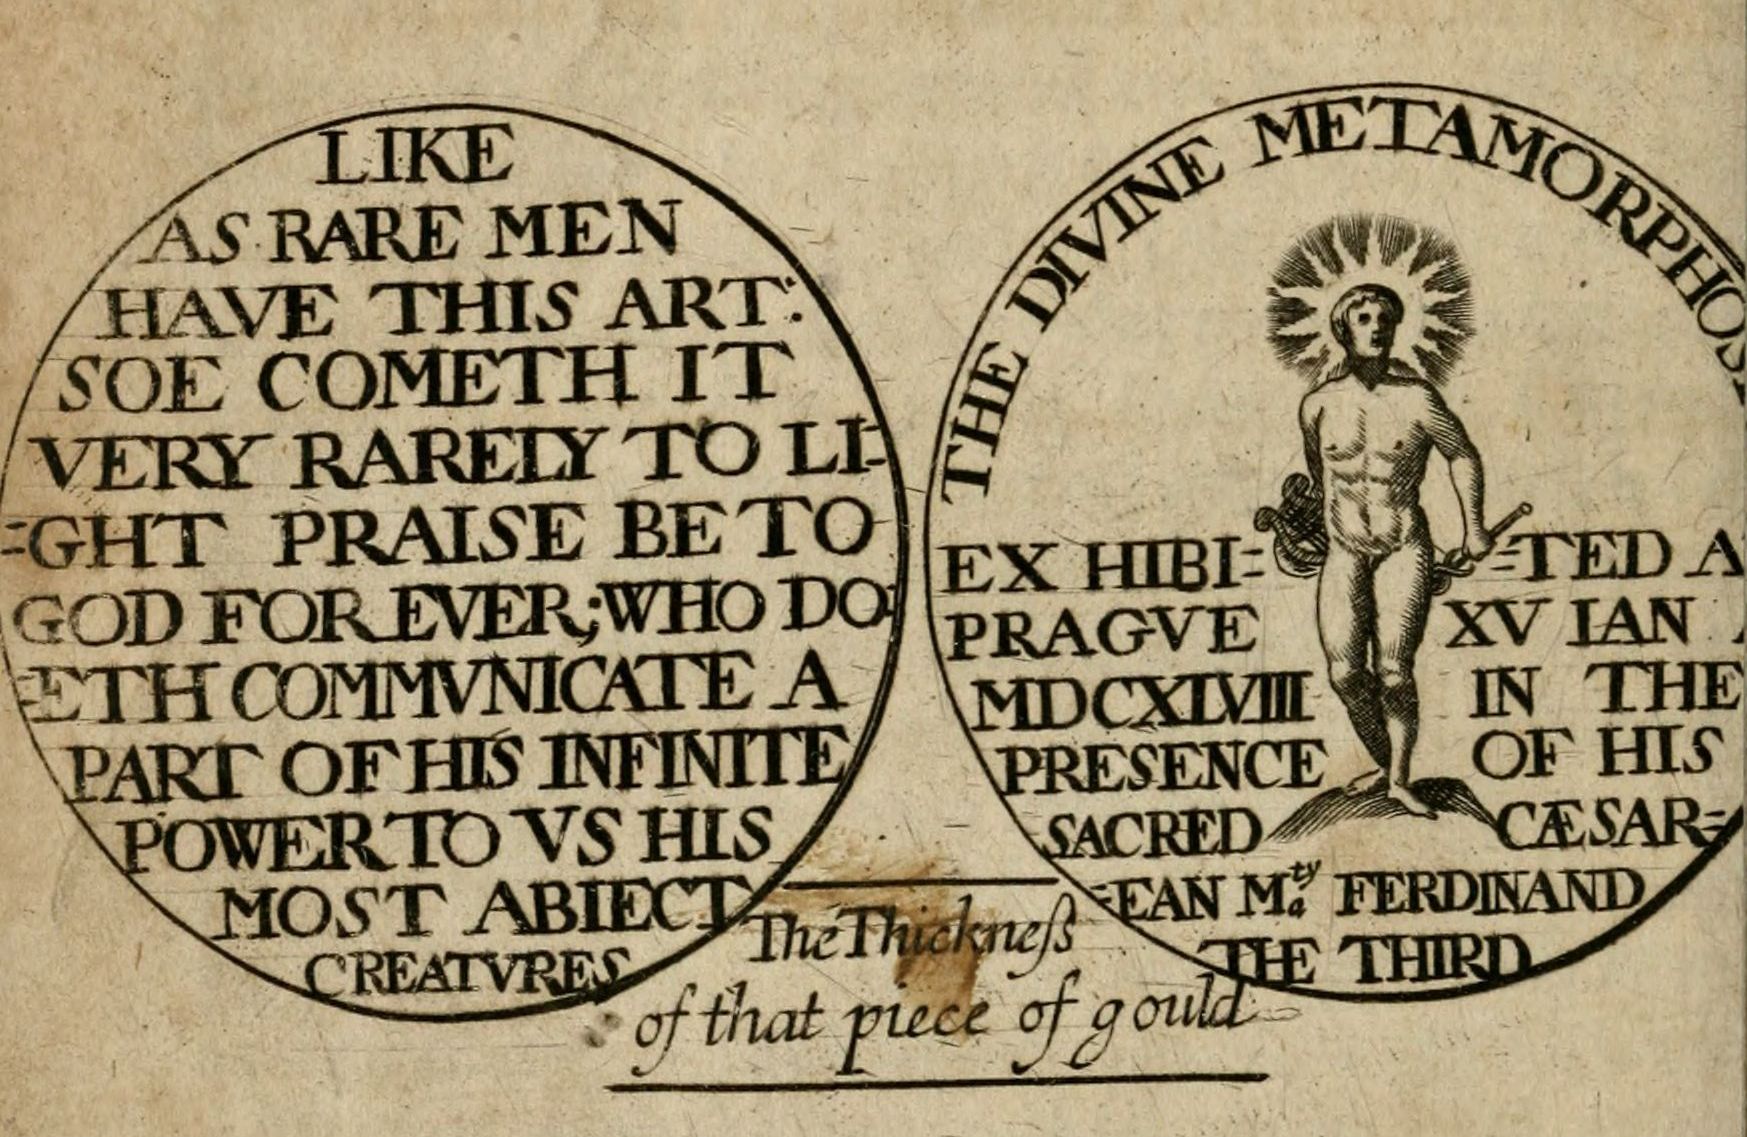 LIKE
AS RARE MEN
HAVE THIS ART:
SOE COMETH IT
VERY RARELY TO LI-
-GHT PRAISE BE TO
GOD FOR EVER; WHO DO-
-ETH COMMVNICATE A
PART OF HIS INFINITE
POWER TO VS HIS
MOST ABIECT
CREATVRES
THE DIVINE METAMORPHOS
EX HIBI- -TED A
PRAGVE XV IAN
MDCXLVIII IN THE
PRESENCE OF HIS
SACRED CÆSAR-
-EAN Ma.ty FERDINAND
THE THIRD
The Thickneſs
of that piece of gould